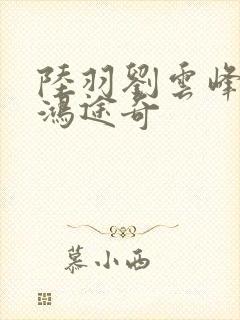 陸羽劉雲峰
鴻途奇
慕小西